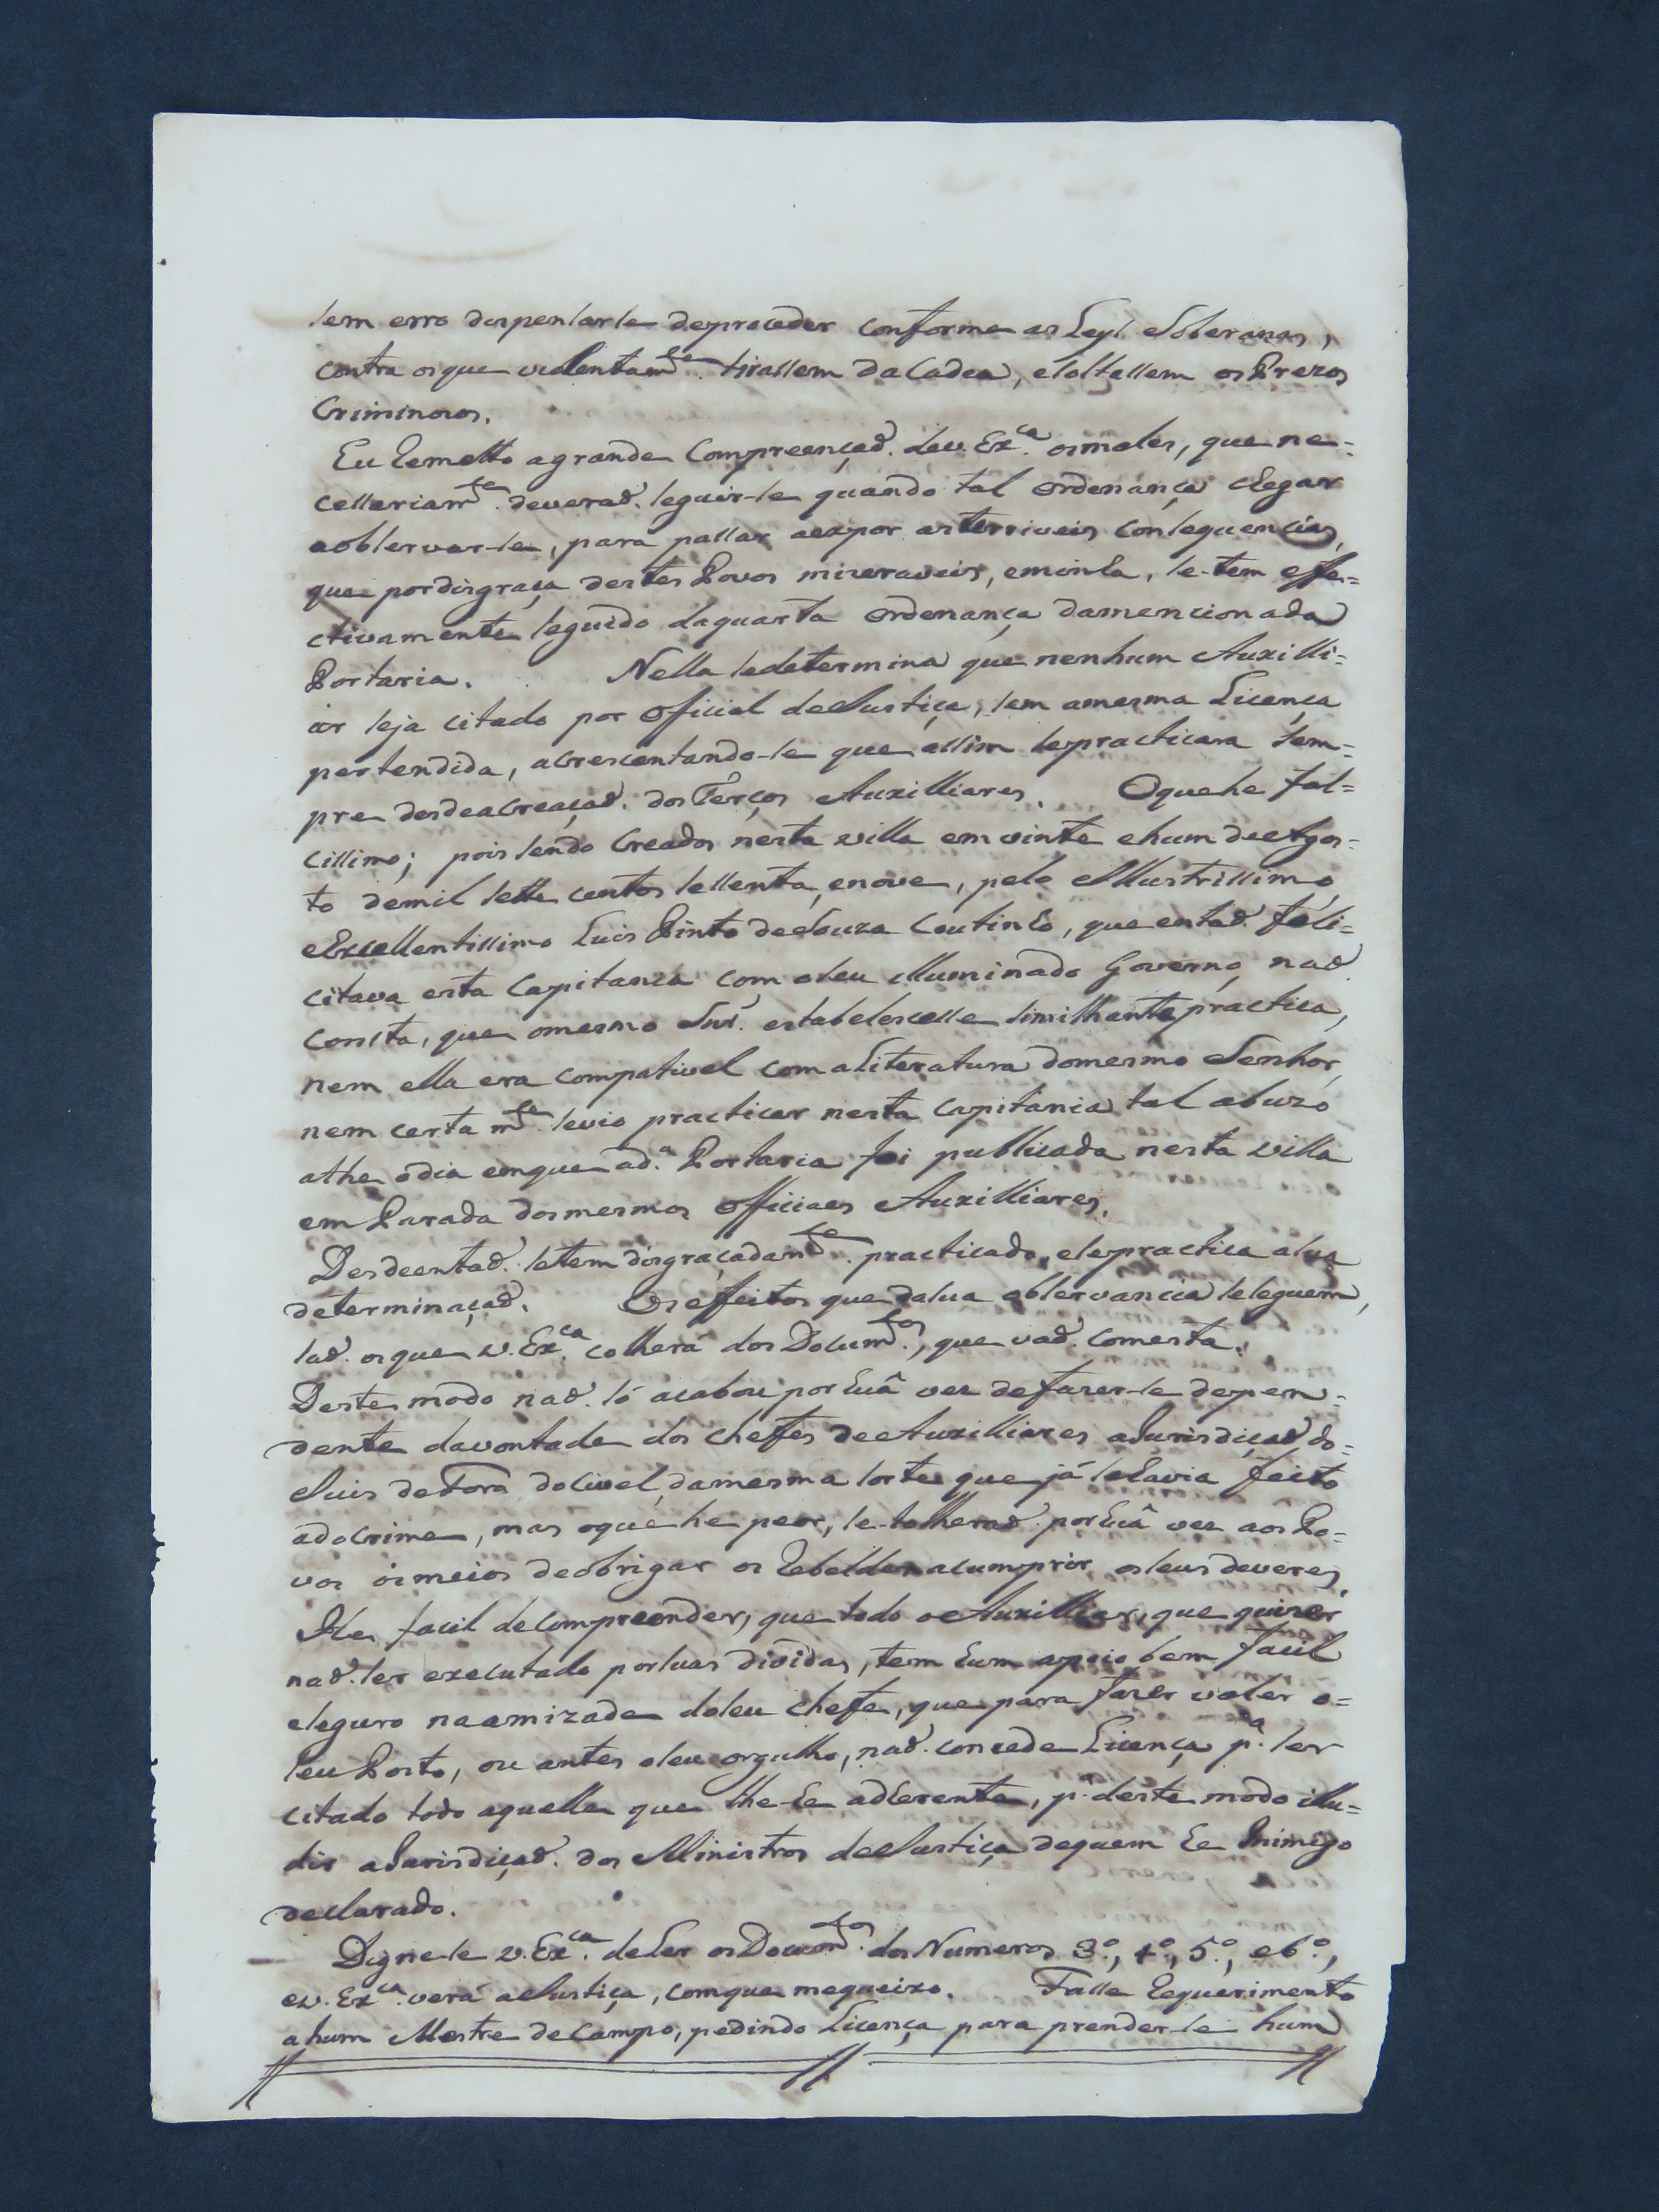 sem erro dispensarse deproceder conforme as Leys Soberanas,
contra osque violentamte. tirassem daCadea, esoltassem os Prezos
Criminosos.
Eu Remetto agrande Compreençaõ. dev. Exca. osmales, que ne=
cessariamte. deveraõ. seguir-se quando tal Ordenança chegar
aobservar-se, para passar aexpor asterriveis consequencias,
que pordisgraça destes Povos mizeraveis, eminha, se-tem effe=
ctivamente seguido daquarta Ordenança damencionada
Portaria. Nella sedetermina que nenhum Auxilli=
ar seja citado por Oficial deJustiça, sem amesma Licença
pertendida, acrescentando-se que assim sepracticara sem=
pre desdeacreaçaõ. dos Terços Auxilliares. Oquehe fal=
cissimo; pois sendo Creados nesta villa em vinte ehum deAgos=
to demil sette centos sessenta, enove, pelo Illustrissimo
eExcellentissimo Luis Pinto deSouza Coutinho, que entaõ. feli=
citava esta Capitania com oseu illuminado Governo, naõ
consta, que omesmo Snr. estabelescesse similhante practica,
nem ella era compativel com aLiteratura domesmo Senhor,
nem certa mte. sevio practicar nesta Capitania tal abuzo
athe odia emque ad.a Portaria foi publicada nesta villa
em Parada dosmesmos Officiaes Auxilliares.
Desdeentaõ. setem disgraçadamte. practicado, esepractica asua
determinaçaõ. Os effeitos que dasua observancia seseguem,
saõ. osque v. Exca. colherá dos Documtos., que vaõ. comesta.
Deste modo naõ. só acabou por huã vez defazer-se depen=
dente davontade dos chefes deAuxilliares aJurisdiçaõ do=
Juis deFora doCivel, damesma sorte que já sehavia feito
adoCrime, mas oque he peor, se-tolheraõ. por huã vez aos Po=
vos osmeios deobrigar os Rebeldes acumprir osseus deveres.
He facil decompreender, que todo oAuxilliar, que quizer
naõ. ser executado porsuas dividas, tem hum apoio bem facil
eseguro naamizade doseu chefe, que para fazer valer o=
seu Posto, ou antes oseu orgulho, naõ. concede Licença pa. ser
citado todo aquelle que lhe-he adherente, p.a deste modo illu=
dir aJurisdiçaõ. dos Ministros deJustiça dequem he Inimigo
declarado.
Digne-se v. Exca. deLer osDocumtos. dos Numeros 3º., 4º., 5º., e6º.,
ev. Exca. verá aJustiça, comque mequeixo. Fasse Requerimento
ahum Mestre deCampo, pedindo Licença para prender-se hum